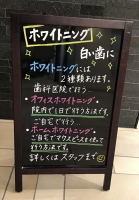 ホワイトニング
白い歯に
ホワイトニングには
2種類あります。
歯科医院で行う
オフィスホワイトニング・
院内で1日で行う方法です。
ご自宅で行う…
ホームホワイトニング・
ご自宅でマウスピースを使って
行う方法です。
詳しくはスタッフまで